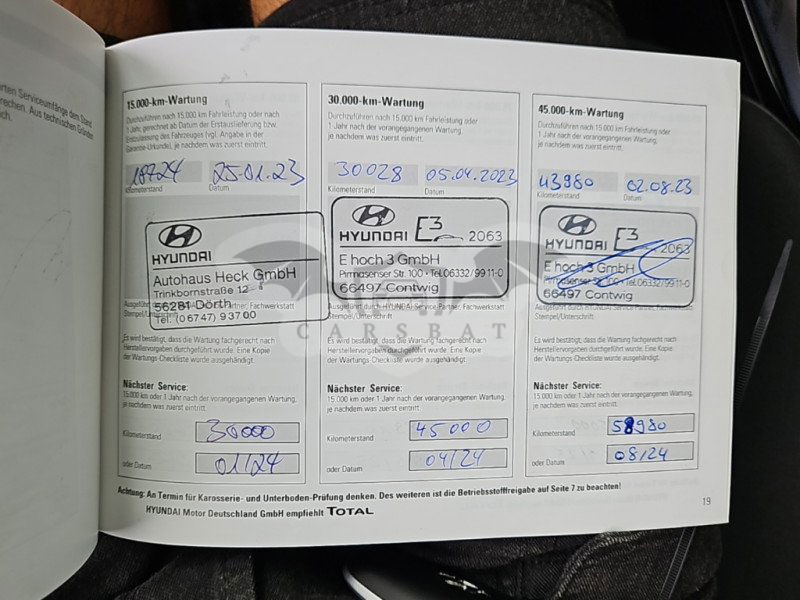 rten Serviceumfänge dem Stand
rechen. Aus technischen Gründen
ch.
15.000-km-Wartung
Durchzuführen nach 15.000 km Fahrleistung oder nach
1 Jahr, gerechnet ab Datum der Erstauslieferung bzw.
Erstzulassung des Fahrzeuges (vgl. Angabe in der
Garantie-Urkunde), je nachdem was zuerst eintritt.
25.01.23
Kilometerstand Datum
HYUNDAI
Autohaus Heck GmbH
Trinkbornstraße 12
56281 Dörth
Tel. (06747) 93700
Es wird bestätigt, dass die Wartung fachgerecht nach
Herstellervorgaben durchgeführt wurde. Eine Kopie
der Wartungs-Checkliste wurde ausgehändigt.
Nächster Service:
15.000 km oder 1 Jahr nach der vorangegangenen Wartung,
je nachdem was zuerst eintritt.
Kilometerstand 30000
oder Datum 01/24
30.000-km-Wartung
Durchzuführen nach 15.000 km Fahrleistung oder
1 Jahr nach der vorangegangenen Wartung,
je nachdem was zuerst eintritt.
30028 05.04.2023
Kilometerstand Datum
HYUNDAI E3 2063
E hoch 3 GmbH
Pirmasenser Str. 100 • Tel.06332/9911-0
66497 Contwig
Ausgeführt durch HYUNDAI-Service-Partner, Fachwerkstatt
Stempel/Unterschrift
CARSBAT
Es wird bestätigt, dass die Wartung fachgerecht nach
Herstellervorgaben durchgeführt wurde. Eine Kopie
der Wartungs-Checkliste wurde ausgehändigt.
Nächster Service:
15.000 km oder 1 Jahr nach der vorangegangenen Wartung,
je nachdem was zuerst eintritt.
Kilometerstand 45000
oder Datum 04/24
45.000-km-Wartung
Durchzuführen nach 15.000 km Fahrleistung oder
1 Jahr nach der vorangegangenen Wartung,
je nachdem was zuerst eintritt.
43980 02.08.23
Kilometerstand Datum
HYUNDAI E3 2063
E hoch 3 GmbH
Pirmasenser Str. 100 • Tel.06332/9911-0
66497 Contwig
Ausgeführt durch HYUNDAI-Service-Partner, Fachwerkstatt
Stempel/Unterschrift
Es wird bestätigt, dass die Wartung fachgerecht nach
Herstellervorgaben durchgeführt wurde. Eine Kopie
der Wartungs-Checkliste wurde ausgehändigt.
Nächster Service:
15.000 km oder 1 Jahr nach der vorangegangenen Wartung,
je nachdem was zuerst eintritt.
Kilometerstand 58980
oder Datum 08/24
Achtung: An Termin für Karosserie- und Unterboden-Prüfung denken. Des weiteren ist die Betriebsstofffreigabe auf Seite 7 zu beachten!
HYUNDAI Motor Deutschland GmbH empfiehlt TOTAL
19